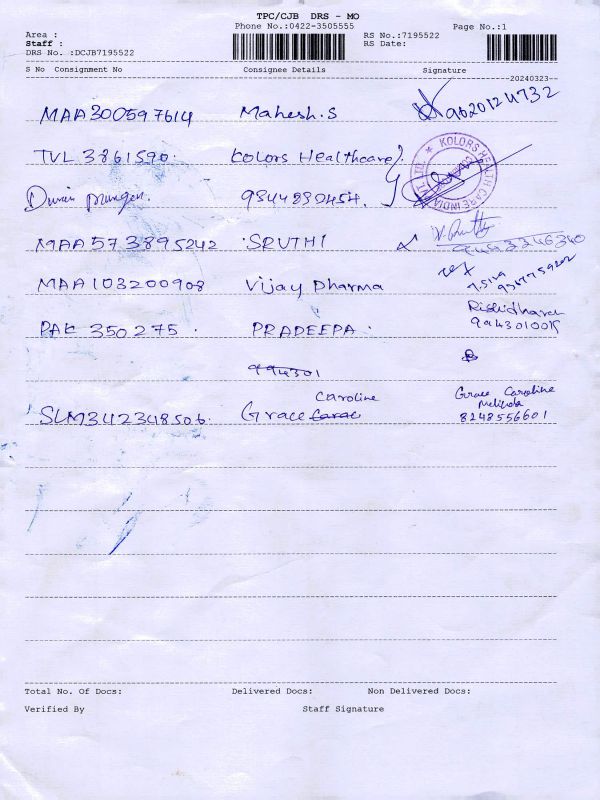 TPC/CJB DRS - MO
Phone No.:0422-3505555
Page No.:1
Area :
Staff :
DRS No. :DCJB7195522
RS No.:7195522
RS Date:
S No Consignment No Consignee Details Signature
20240323
MAA300597614 Mahesh.S 9620124732
TVL 3861590. Kolors Healthcare
KOLORS HEALTH CARE INDIA PVT. LTD.
9344230454.
MAA573895242 SRUTHI
MAA103200908 Vijay Pharma
PAK 350275. PRADEEPA.
Rishidharan
994301
SLM342348506. Grace Caroline
Grace Caroline
8248556601
Total No. Of Docs: Delivered Docs: Non Delivered Docs:
Verified By Staff Signature